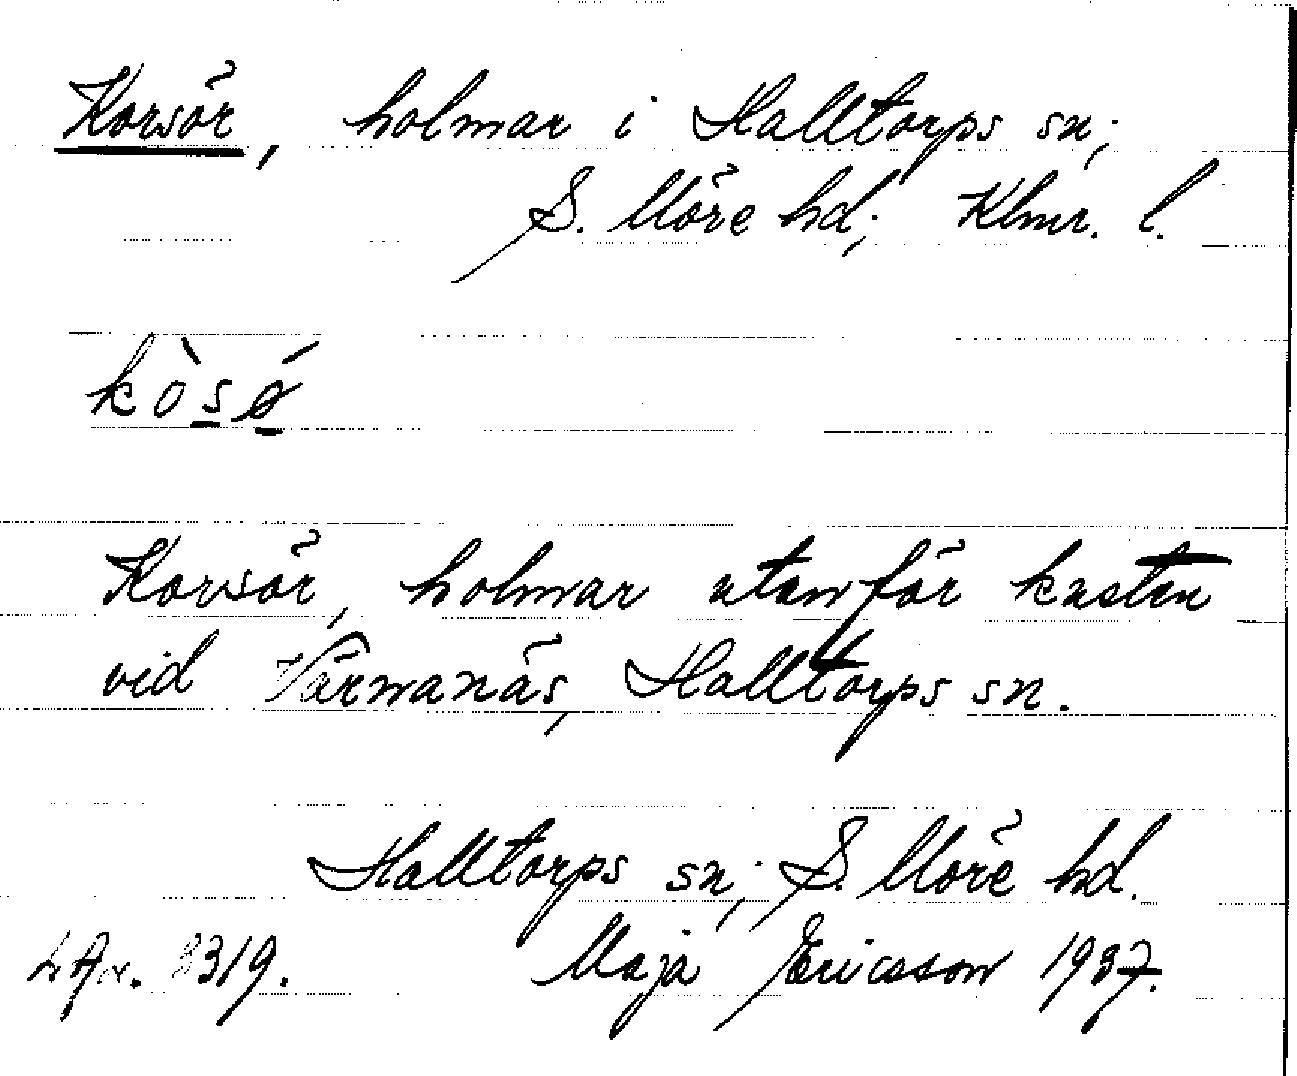 Korsör, holmar i Halltorps sn;
S. Möre hd; Klmr. l.
kòsǿ
Korsör, holmar utanför kusten
vid Värmanäs, Halltorps sn.
Halltorps sn; S. Möre hd.
3319. Maja Ericsson 1937.